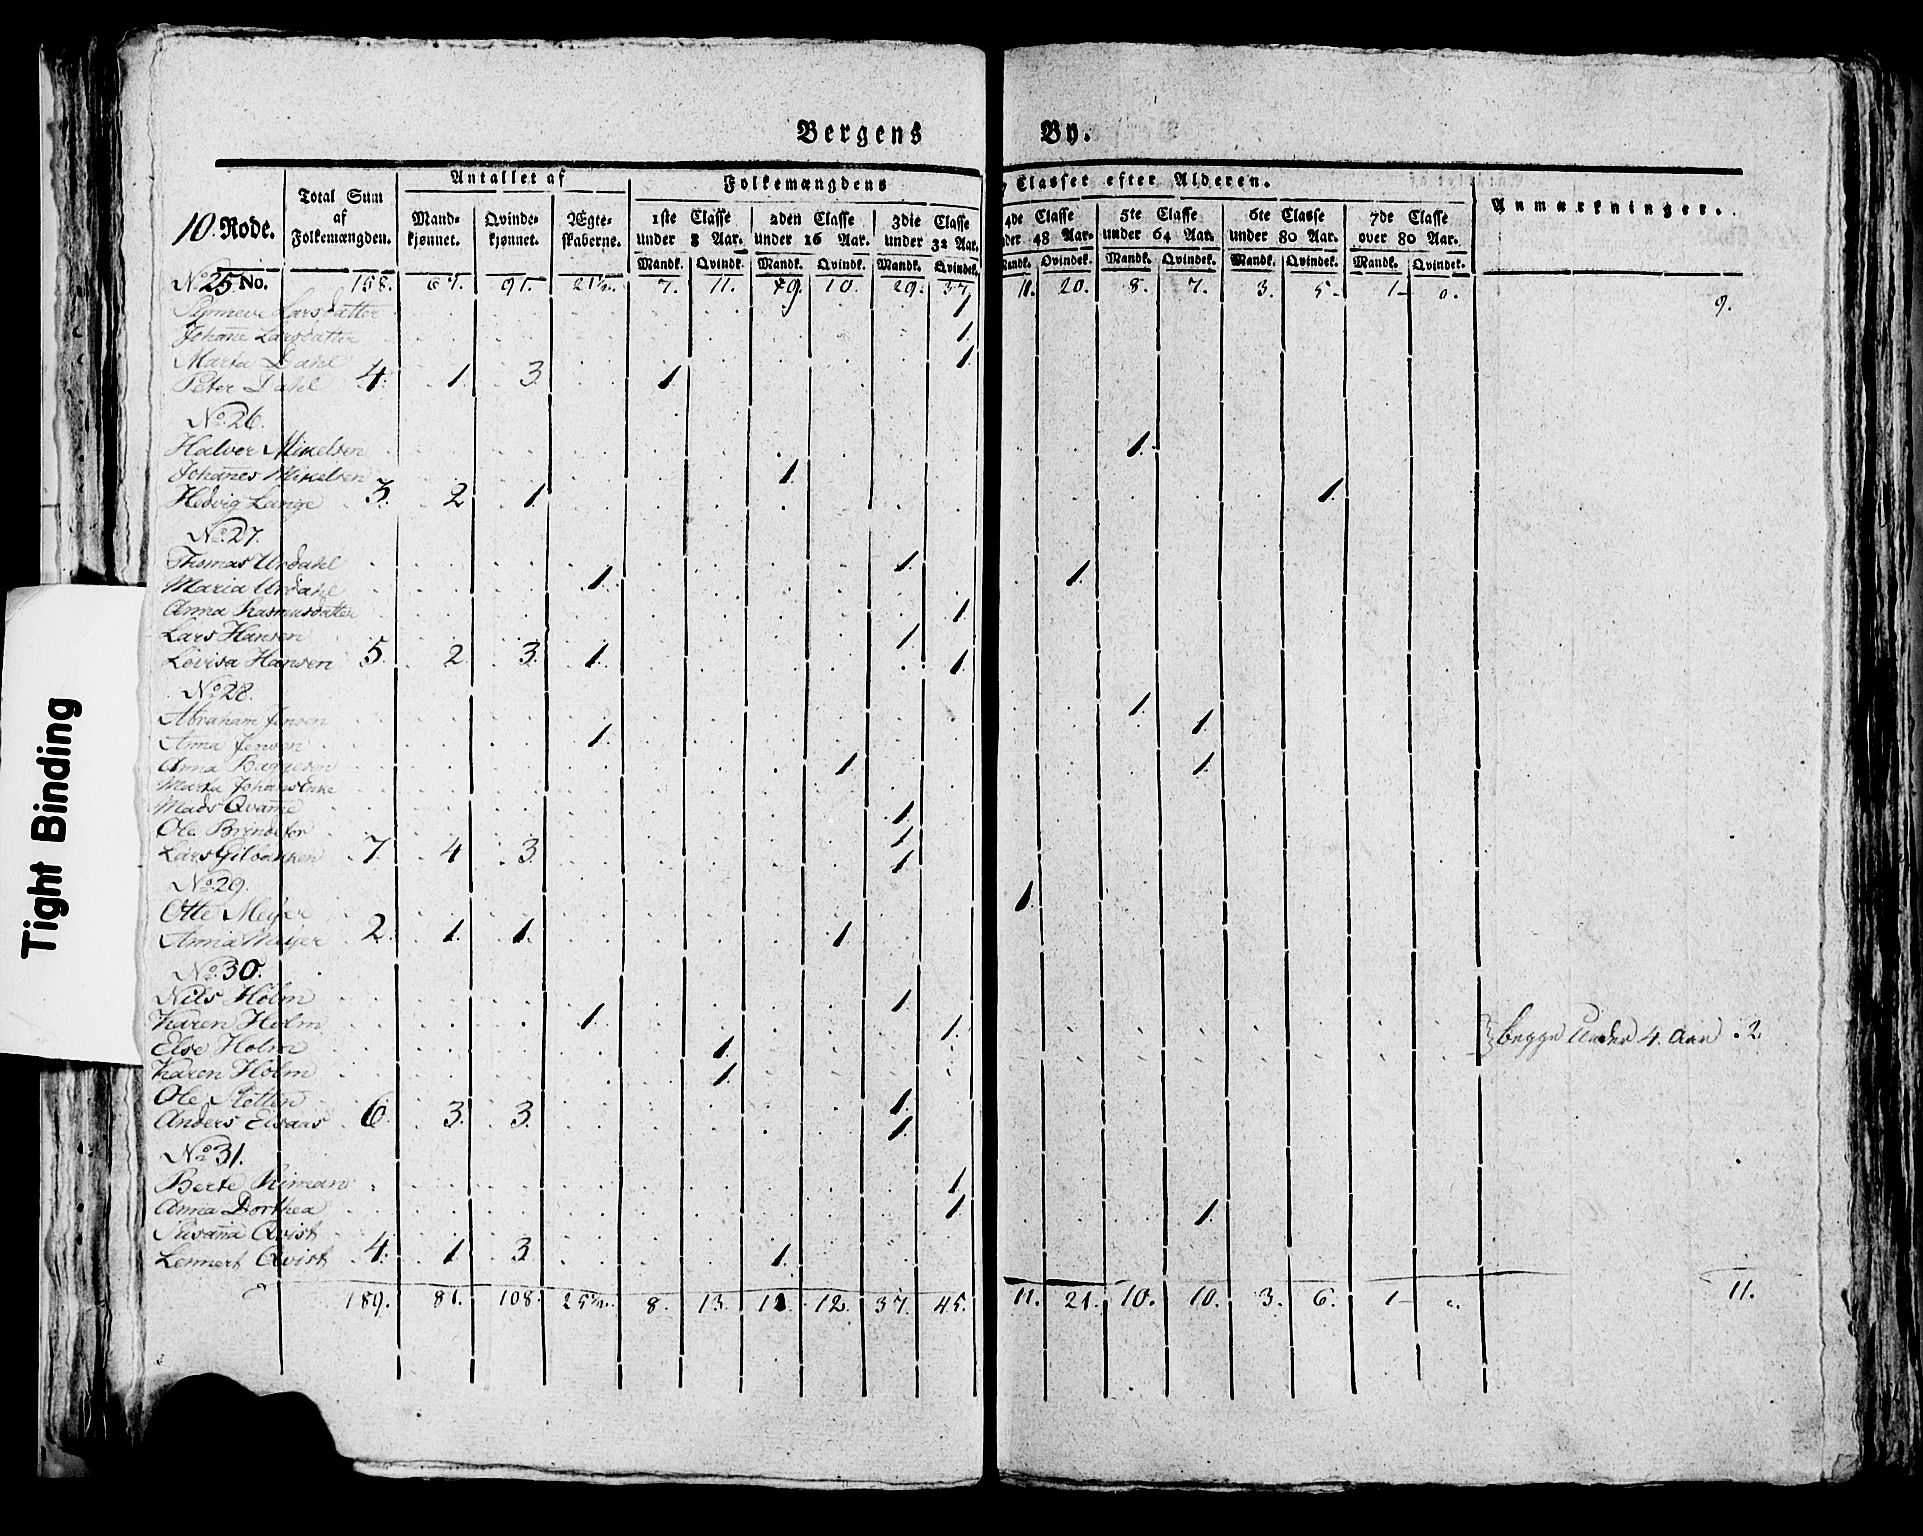 Bergens By.
10. Rode. Total Sum af Folkemængden. Antallet af Folkemængdens Classer efter Alderen. Anmærkninger.
Mandkjønnet. Qvindekjønnet. Ægteskaberne. 1ste Classe under 8 Aar. 2den Classe under 16 Aar. 3die Classe under 32 Aar. 4de Classe under 48 Aar. 5te Classe under 64 Aar. 6te Classe under 80 Aar. 7de Classe over 80 Aar.
Mandk. Qvindk. Mandk. Qvindk. Mandk. Qvindek. Mandk. Qvindek. Mandk. Qvindek. Mandk. Qvindek. Mandk. Qvindek.
No. 25 No. 158. 67. 91. 21½. 7. 11. 9. 10. 29. 37. 11. 20. 8. 7. 3. 5. 1 0. 9.
Synneve Larsdatter 1
Johane Larsdatter 1
Marta Dahl 1
Peter Dahl 4. 1. 3. 1.
No. 26.
Halver Mikelsen 1.
Johanes Mikelsen 1.
Hedvig Lange 3. 2 1. 1.
No. 27.
Thomas Urdahl 1.
Maria Urdahl 1. 1.
Anna Rasmusdatter 1.
Lars Hansen 1
Lovisa Hansen 5. 2. 3. 1. 1.
No. 28.
Abraham Jensen 1.
Anna Jensen 1. 1.
Anna Baggesen 1.
Marta Johans 1.
Mads Qvamme 1.
Ole 1.
Lars 7. 4. 3. 1.
No. 29.
Otte Meyer 1.
Anna Meyer 2. 1. 1. 1.
No. 30.
Nils Holm 1.
Karen Holm 1. 1.
Else Holm 1. begge Under 4. Aar 2
Karen Holm 1.
Ole Sletten 1.
Anders 6. 3. 3. 1.
No. 31.
Berte 1.
Anna Dorthea 1.
Susana Qvist 1.
Lennert Qvist 4. 1. 3. 1.
189. 81. 108. 25½. 8. 13. 11. 12. 37. 45. 11. 21. 10. 10. 3. 6. 1 11.
Tight Binding